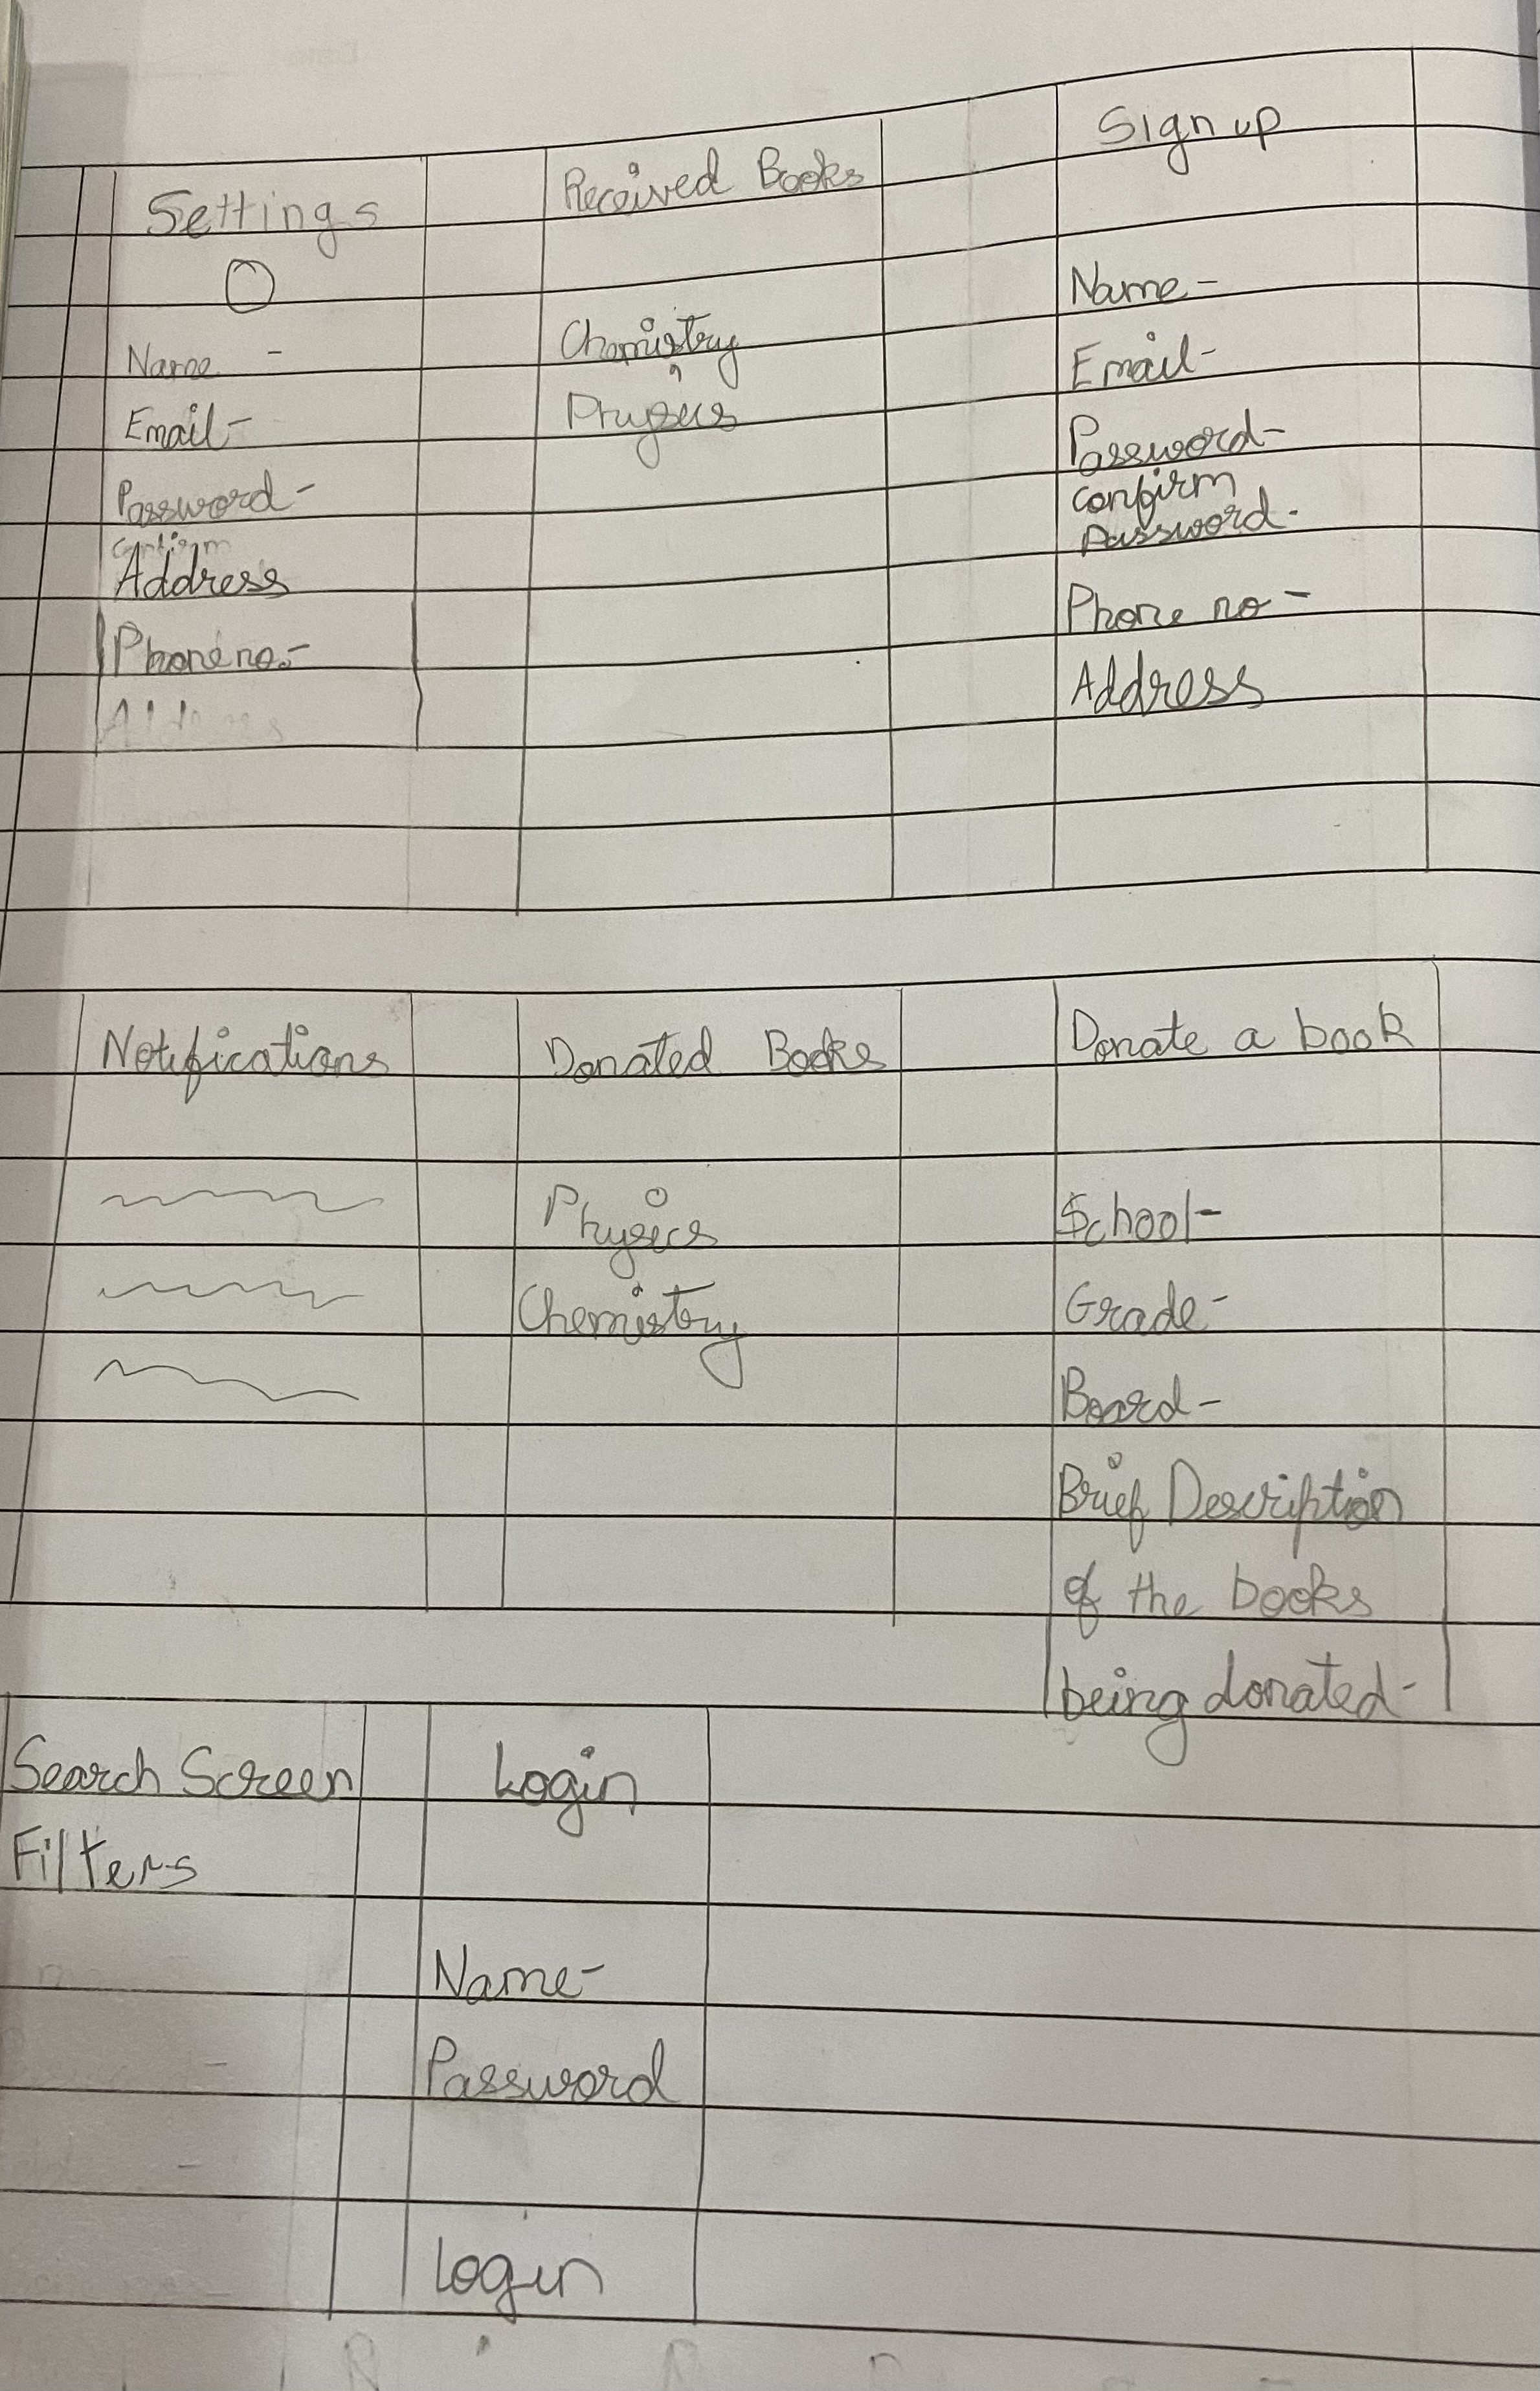 Settings
Name -
Email-
Password-
Confirm
Address
Phone no.-
Address
Received Books
Chemistry
Physics
Sign up
Name-
Email-
Password-
Confirm
Password-
Phone no-
Address
Notifications
Donated Books
Physics
Chemistry
Donate a book
School-
Grade-
Board-
Brief Description
of the books
being donated-
Search Screen
Filters
Login
Name-
Password
Login